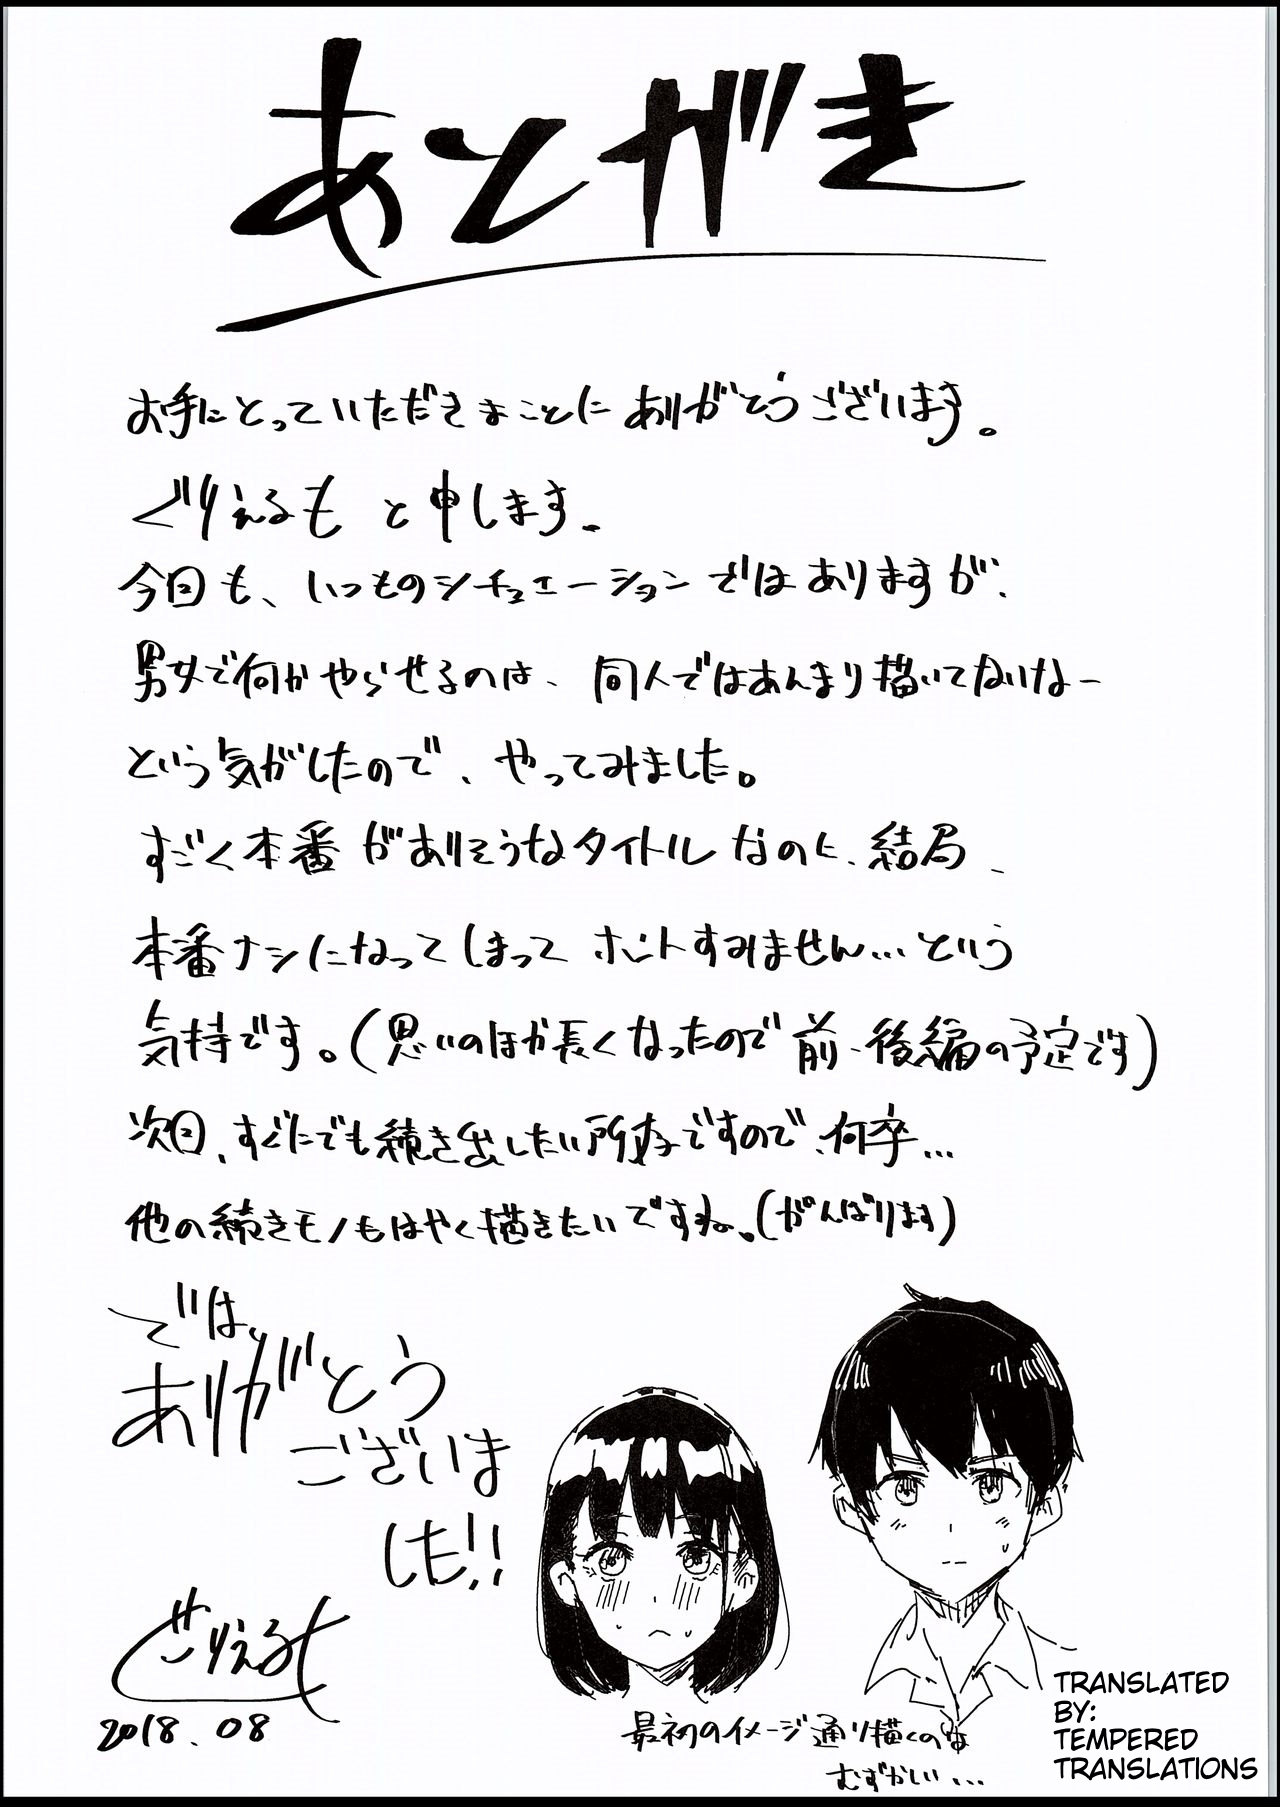 あとがき
お手にとっていただきまことにありがとうございます。
ぐりえるも と申します。
今回も、いつものシチュエーションではありますが、
男女で何かやらせるのは、同人ではあんまり描いてないなー
という気がしたので、やってみました。
すごく本番がありそうなタイトルなのに、結局、
本番ナシになってしまってホントすみません…という
気持です。(思いのほか長くなったので前・後編の予定です)
次回、すぐにでも続き出したい所存ですので、何卒…
他の続きモノもはやく描きたいですね。(がんばります)
では、
ありがとう
ございま
した!!
ぐりえるも
2018.08
最初のイメージ通り描くのは
むずかしい…
TRANSLATED
BY:
TEMPERED
TRANSLATIONS